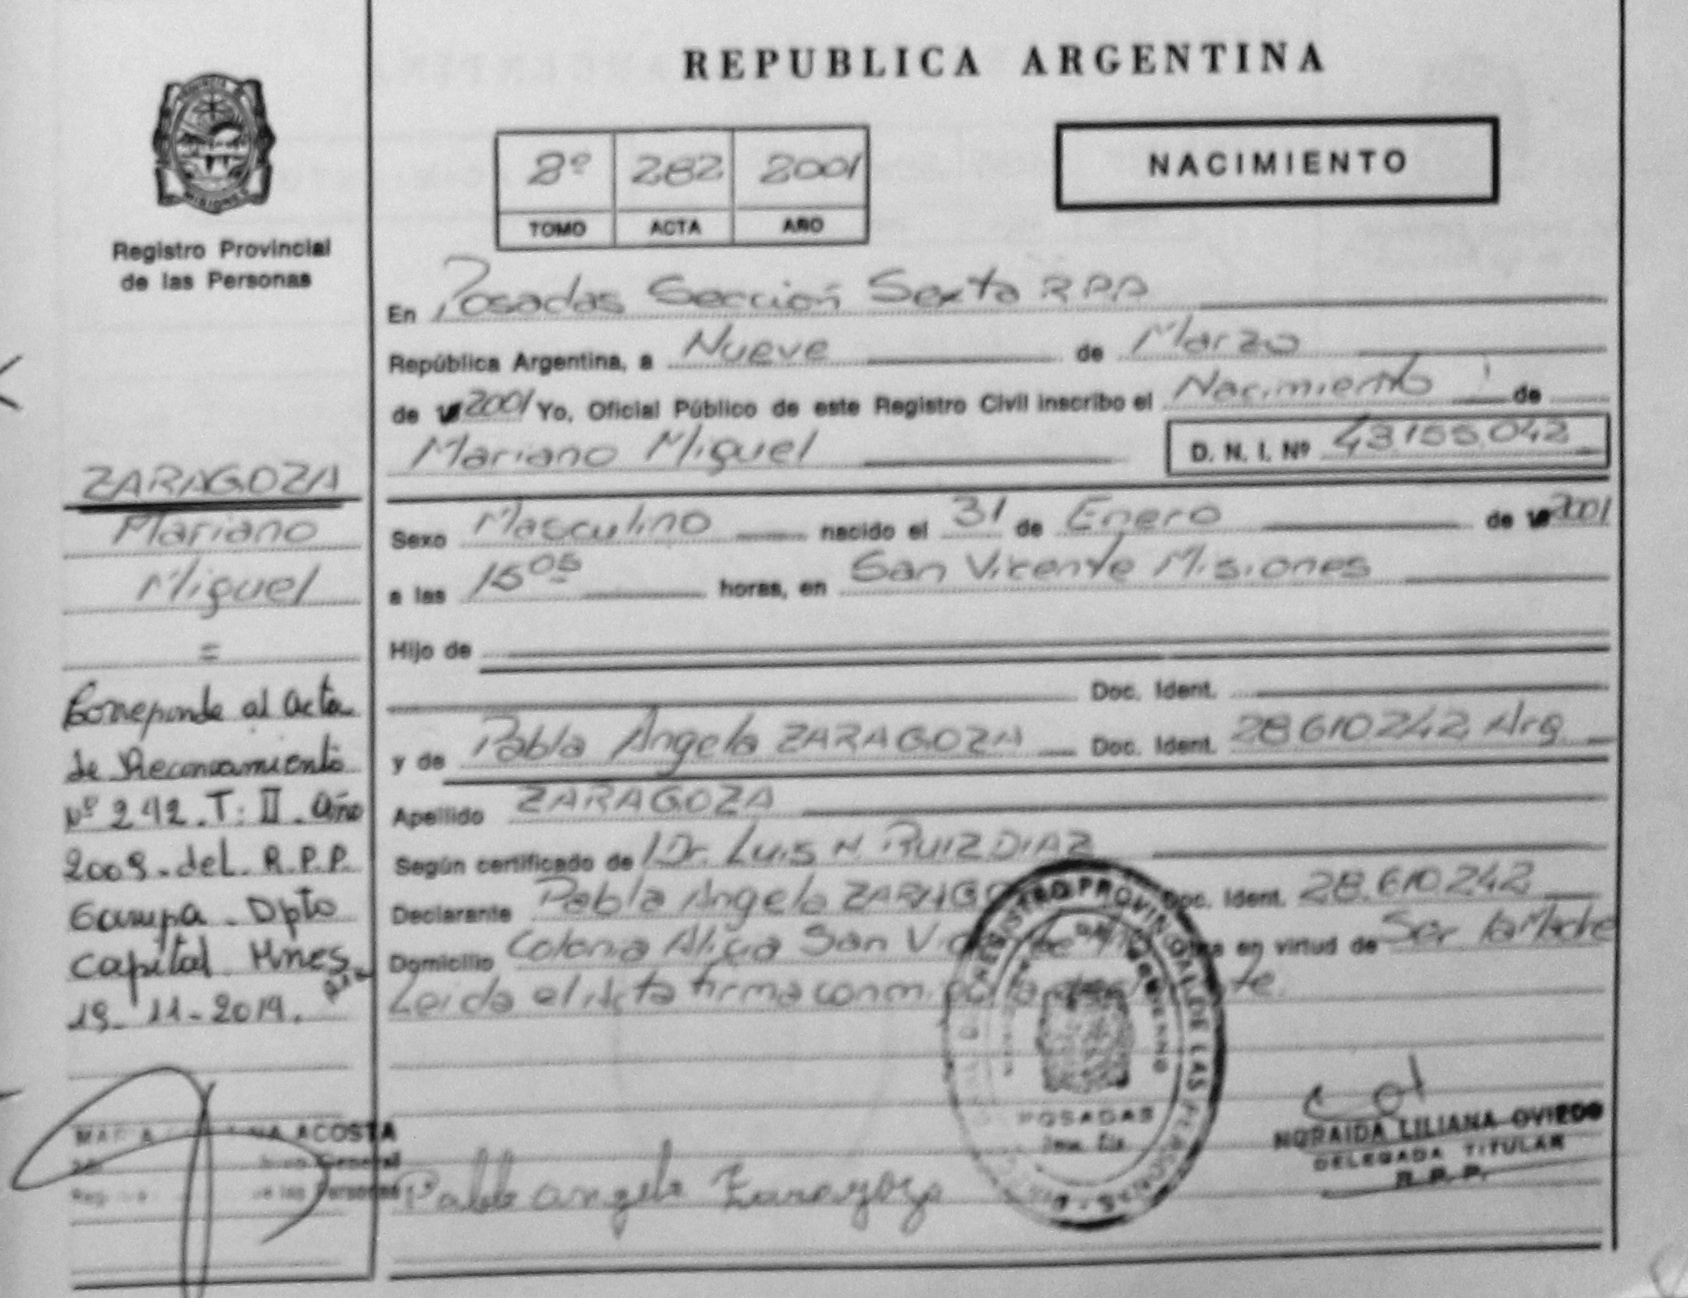 REPUBLICA ARGENTINA
NACIMIENTO
2º 282 2001
TOMO ACTA AÑO
Registro Provincial
de las Personas
En Posadas Sección Sexta R.P.P
República Argentina, a Nueve de Marzo
de 2001 Yo, Oficial Público de este Registro Civil inscribo el Nacimiento de
Mariano Miguel D. N. I. Nº 43.155.042
Sexo Masculino nacido el 31 de Enero de 2001
a las 15 05 horas, en San Vicente Misiones
Hijo de
Doc. Ident.
y de Pabla Angela ZARAGOZA Doc. Ident. 28610242 Arg
Apellido ZARAGOZA
Según certificado de Dr. Luis N. RUIZ DIAZ
Declarante Pabla Angela Doc. Ident. 28.610.242
Domicilio Colonia Alicia San en virtud de Ser la Madre
Leida el Acta firma conmigo
ZARAGOZA
Mariano
Miguel
=
Correponde al Acta
de Reconocimiento
Nº 242. T: II. Año
2009. del. R.P.P.
Dpto
Capital Mnes
19-11-2019.
ACOSTA
General
de las Personas
Pabla angela Zaragoza
REGISTRO PROVINCIAL DE LAS PERSONAS
POSADAS
NORAIDA LILIANA OVIEDO
DELEGADA TITULAR
R.P.P.